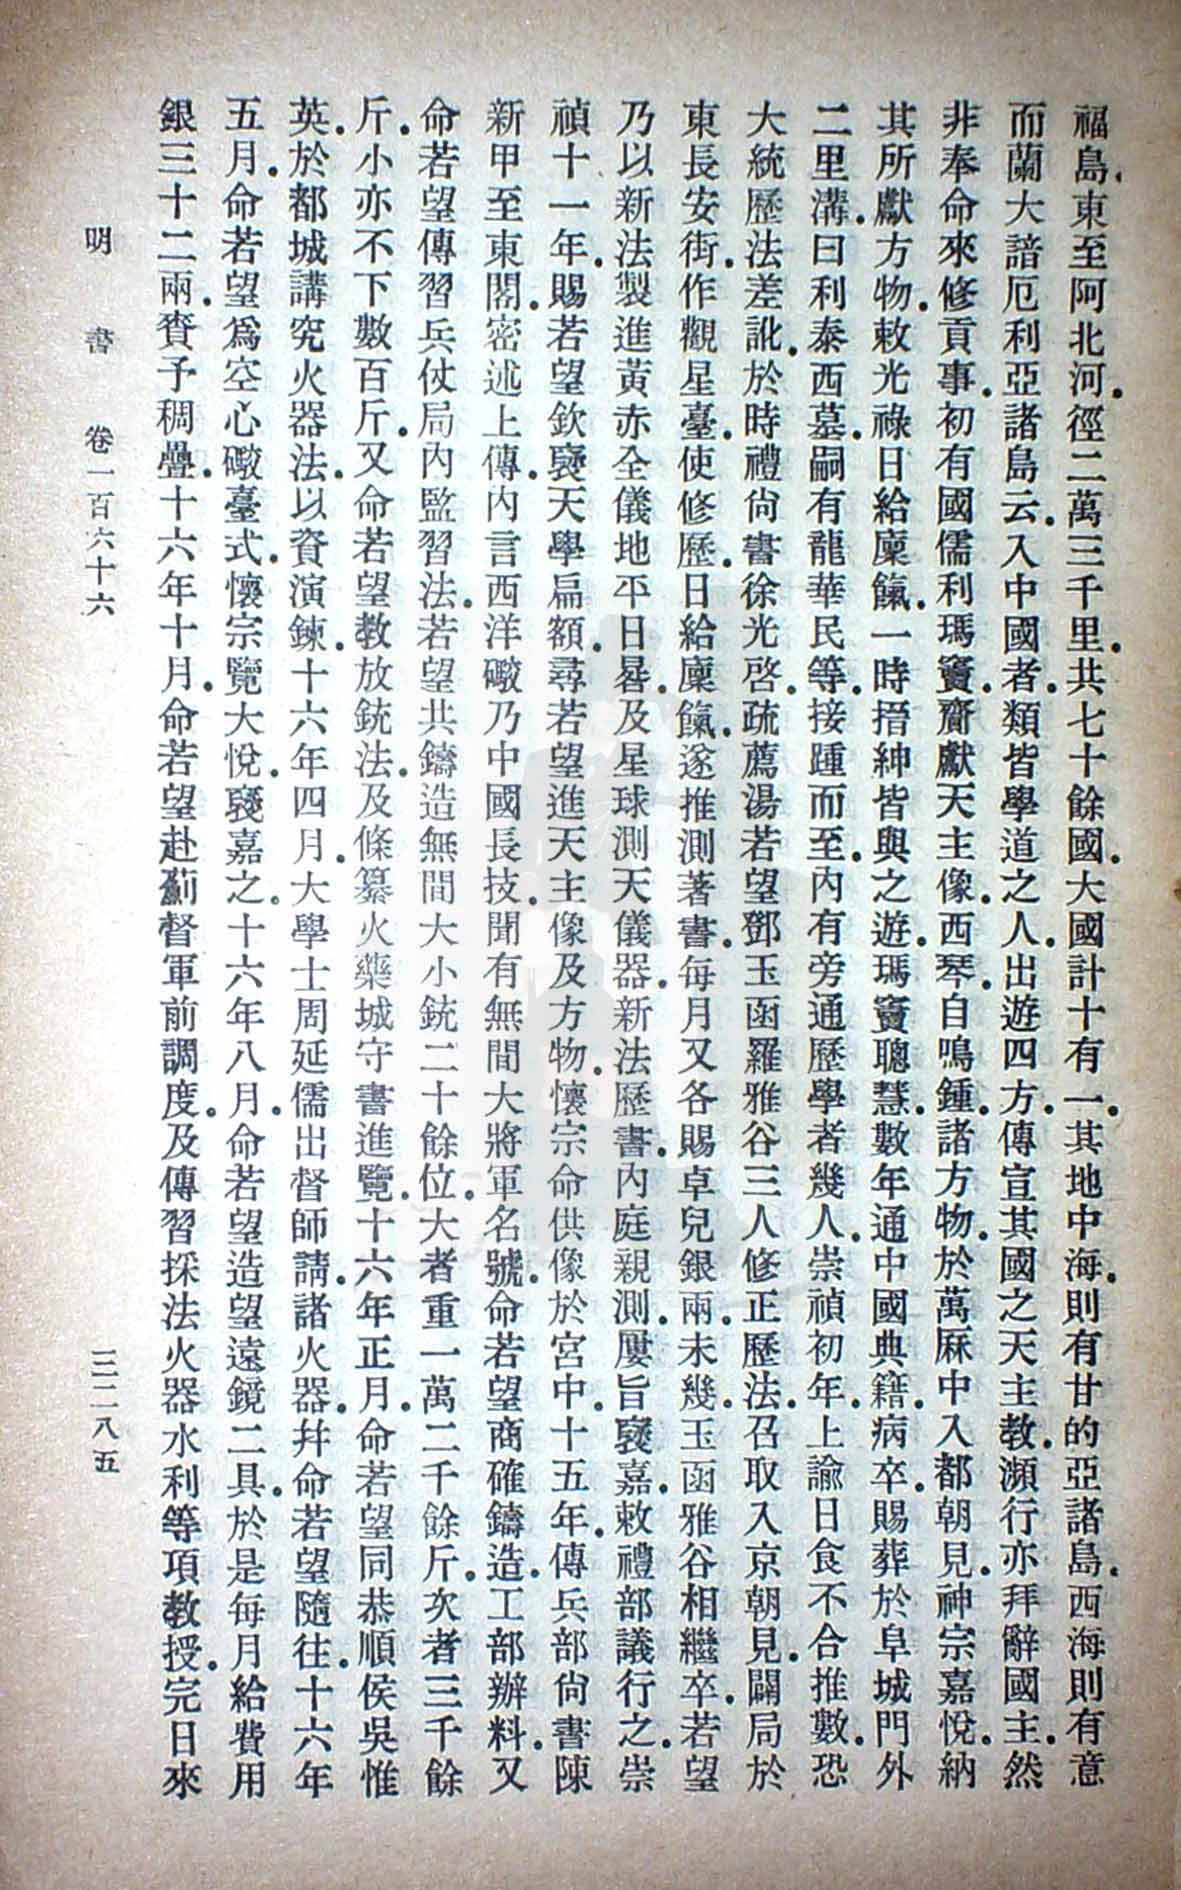 福島東至阿北河徑二萬三千里共七十餘國大國計十有一其地中海則有甘的亞諸島西海則有意
而蘭大諳厄利亞諸島云入中國者類皆學道之人出遊四方傳宣其國之天主教瀕行亦拜辭國主然
非奉命來修貢事初有國儒利瑪竇齎獻天主像西琴自鳴鍾諸方物於萬麻中入都朝見神宗嘉悅納
其所獻方物敕光祿日給廩餼一時搢紳皆與之遊瑪竇聰慧數年通中國典籍病卒賜葬於阜城門外
二里溝曰利泰西墓嗣有龍華民等接踵而至內有旁通歷學者幾人崇禎初年上諭日食不合推數恐
大統歷法差訛於時禮尙書徐光啓疏薦湯若望鄧玉函羅雅谷三人修正歷法召取入京朝見闢局於
東長安街作觀星臺使修歷日給廩餼遂推測著書每月又各賜卓兒銀兩未幾玉函雅谷相繼卒若望
乃以新法製進黃赤全儀地平日晷及星球測天儀器新法歷書內庭親測屢旨襃嘉敕禮部議行之崇
禎十一年賜若望欽襃天學扁額尋若望進天主像及方物懷宗命供像於宮中十五年傳兵部尙書陳
新甲至東閣密述上傳內言西洋礮乃中國長技聞有無間大將軍名號命若望商確鑄造工部辦料又
命若望傳習兵仗局內監習法若望共鑄造無間大小銃二十餘位大者重一萬二千餘斤次者三千餘
斤小亦不下數百斤又命若望教放銃法及條纂火藥城守書進覽十六年正月命若望同恭順侯吳惟
英於都城講究火器法以資演鍊十六年四月大學士周延儒出督師請諸火器幷命若望隨往十六年
五月命若望爲空心礮臺式懷宗覽大悅襃嘉之十六年八月命若望造望遠鏡二具於是每月給費用
銀三十二兩賚予稠疊十六年十月命若望赴薊督軍前調度及傳習採法火器水利等項教授完日來
明書 卷一百六十六 三二八五